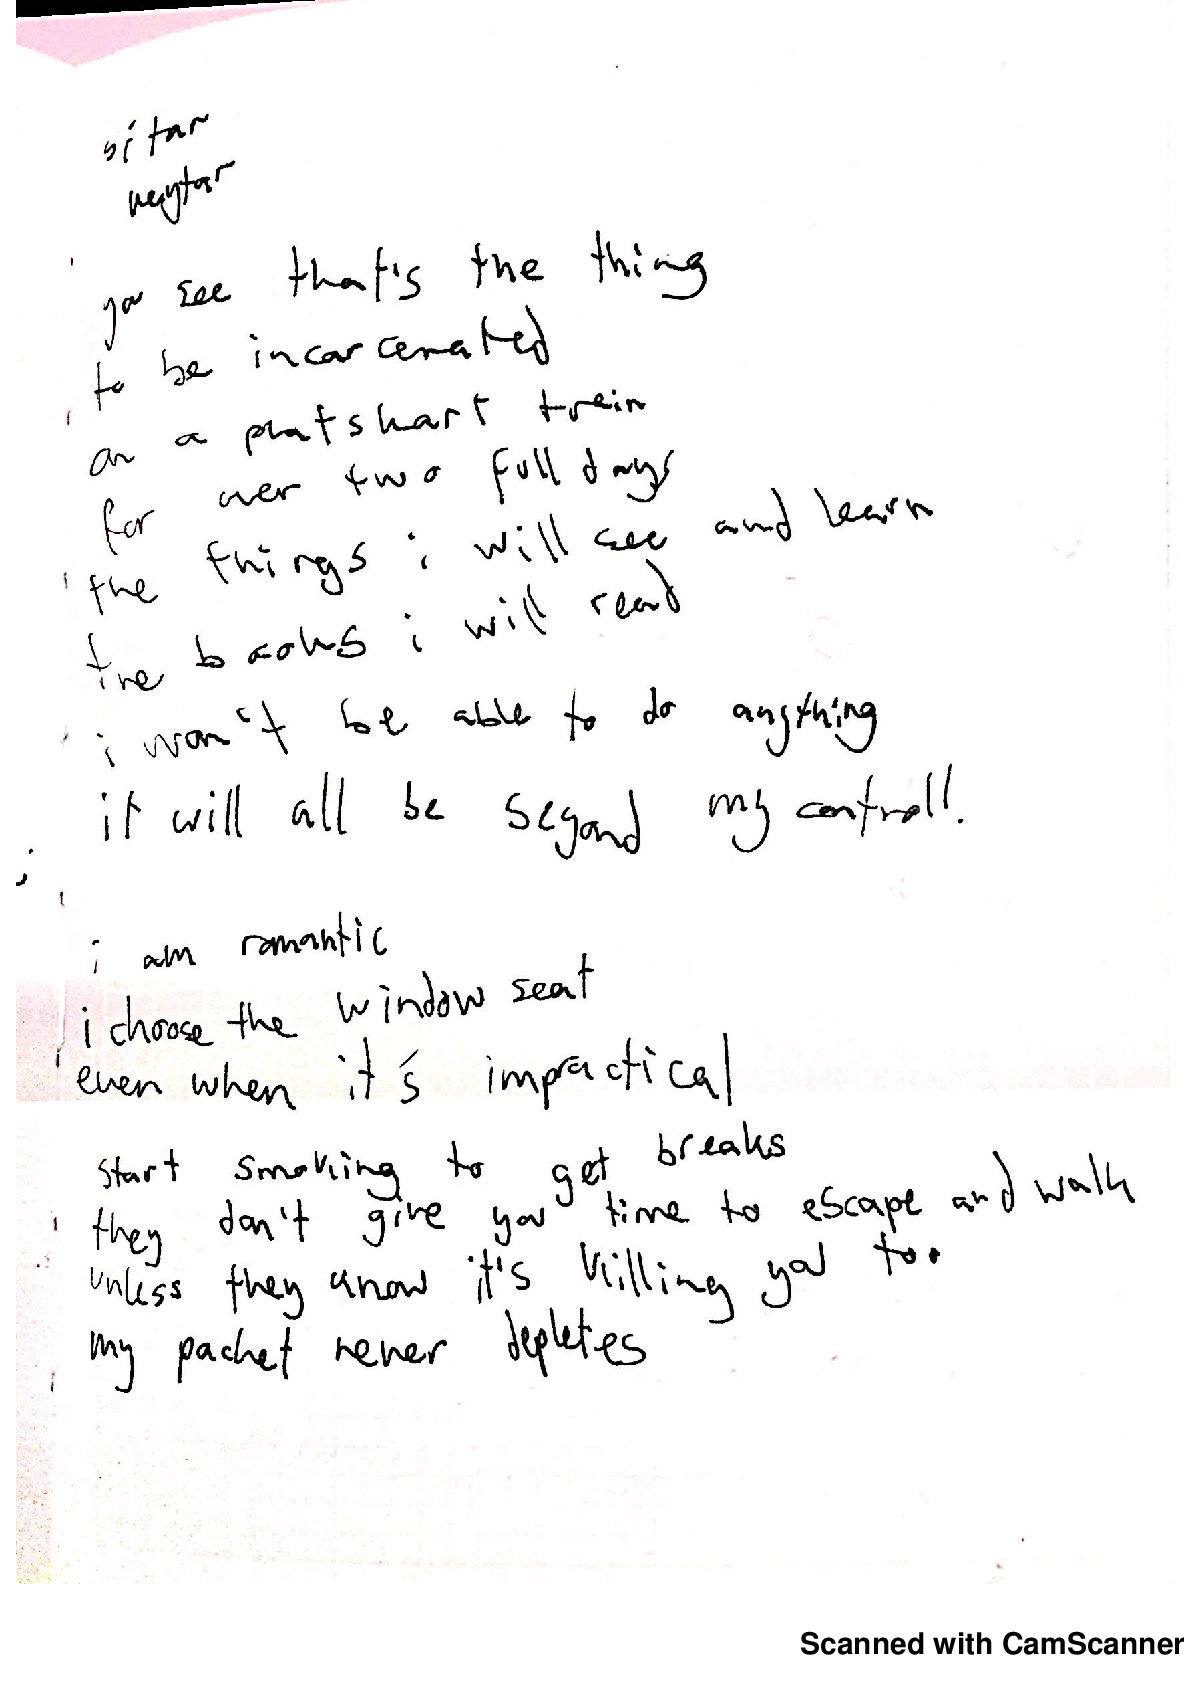 sitar
neytar
you see that's the thing
to be incarcerated
on a platskart train
for over two full days
the things i will see and learn
the books i will read
i won't be able to do anything
it will all be beyond my control!
i am romantic
i choose the window seat
even when it's impractical
start smoking to get breaks
they don't give you time to escape and walk
unless they know it's killing you too
my packet never depletes
Scanned with CamScanner